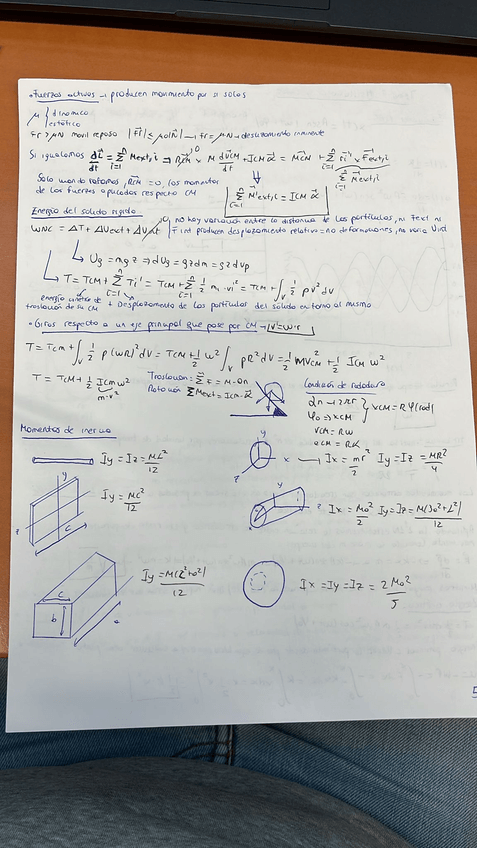 • Fuerzas activas → producen movimiento por si solas
μ { dinamico
estático
Fr > μN movil reposo |Fr| ≤ μ0|N| → Fr = μN → deslizamiento inminente
Si igualamos dL/dt = Σ Mext,i ⇒ RCM × M dvCM/dt + ICM α = MCM + Σ ri' × Fext,i
Σ M'ext,i
Solo mundo rotamos, RCM = 0, los momentos
de las fuerzas aplicadas respecto CM
Σ M'ext,i = ICM α
Energía del sólido rígido
WNC = ΔT + ΔUext + ΔUint
0, no hay variación entre la distancia de las partículas, ni Fext ni
Fint producen desplazamiento relativo = no deformaciones, no varía Uint
Ug = mgz → dUg = gzdm = gzdVρ
T = TCM + Σ Ti' = TCM + Σ 1/2 mi · vi'² = TCM + ∫v 1/2 ρv²dV
energía cinética de
traslación de su CM + Desplazamiento de las partículas del sólido entorno al mismo
• Giros respecto a un eje principal que pase por CM → |v| = ω·r
T = TCM + ∫v 1/2 ρ(ωR)²dV = TCM + 1/2 ω² ∫v ρR²dV = 1/2 MVCM² + 1/2 ICM ω²
T = TCM + 1/2 ICM ω²
m·r²
Traslación: ΣF = M·a
Rotación ΣMext = ICM·α
Condición de rodadura
2π → 2πR
φ0 → xCM
xCM = Rφ(rad)
vCM = Rω
aCM = Rα
Momentos de inercia
Iy = Iz = ML²/12
y
x
z
Ix = mr²/2 Iy = Iz = MR²/4
y
c
Iy = Mc²/12
Ix = Ma²/2 Iy = Iz = M(3a² + L²)/12
c
b
a
Iy = M(c² + a²)/12
Ix = Iy = Iz = 2Ma²/5
5